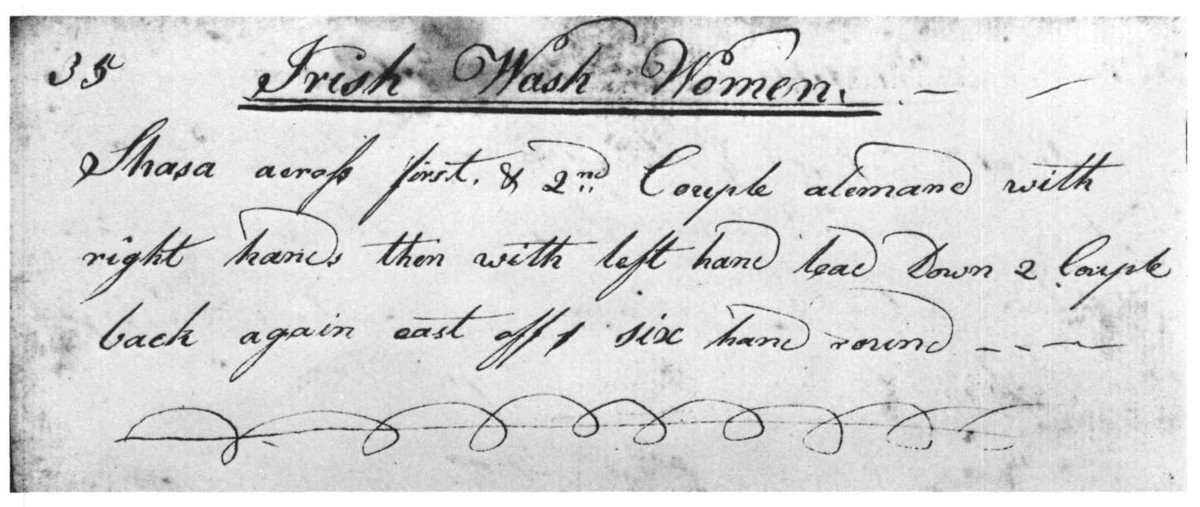 35 Irish Wash Women. — —
Shasa across first, & 2nd Couple alemand with
right hands then with left hand lead Down 2 Couple
back again cast off 1 six hand round - - —